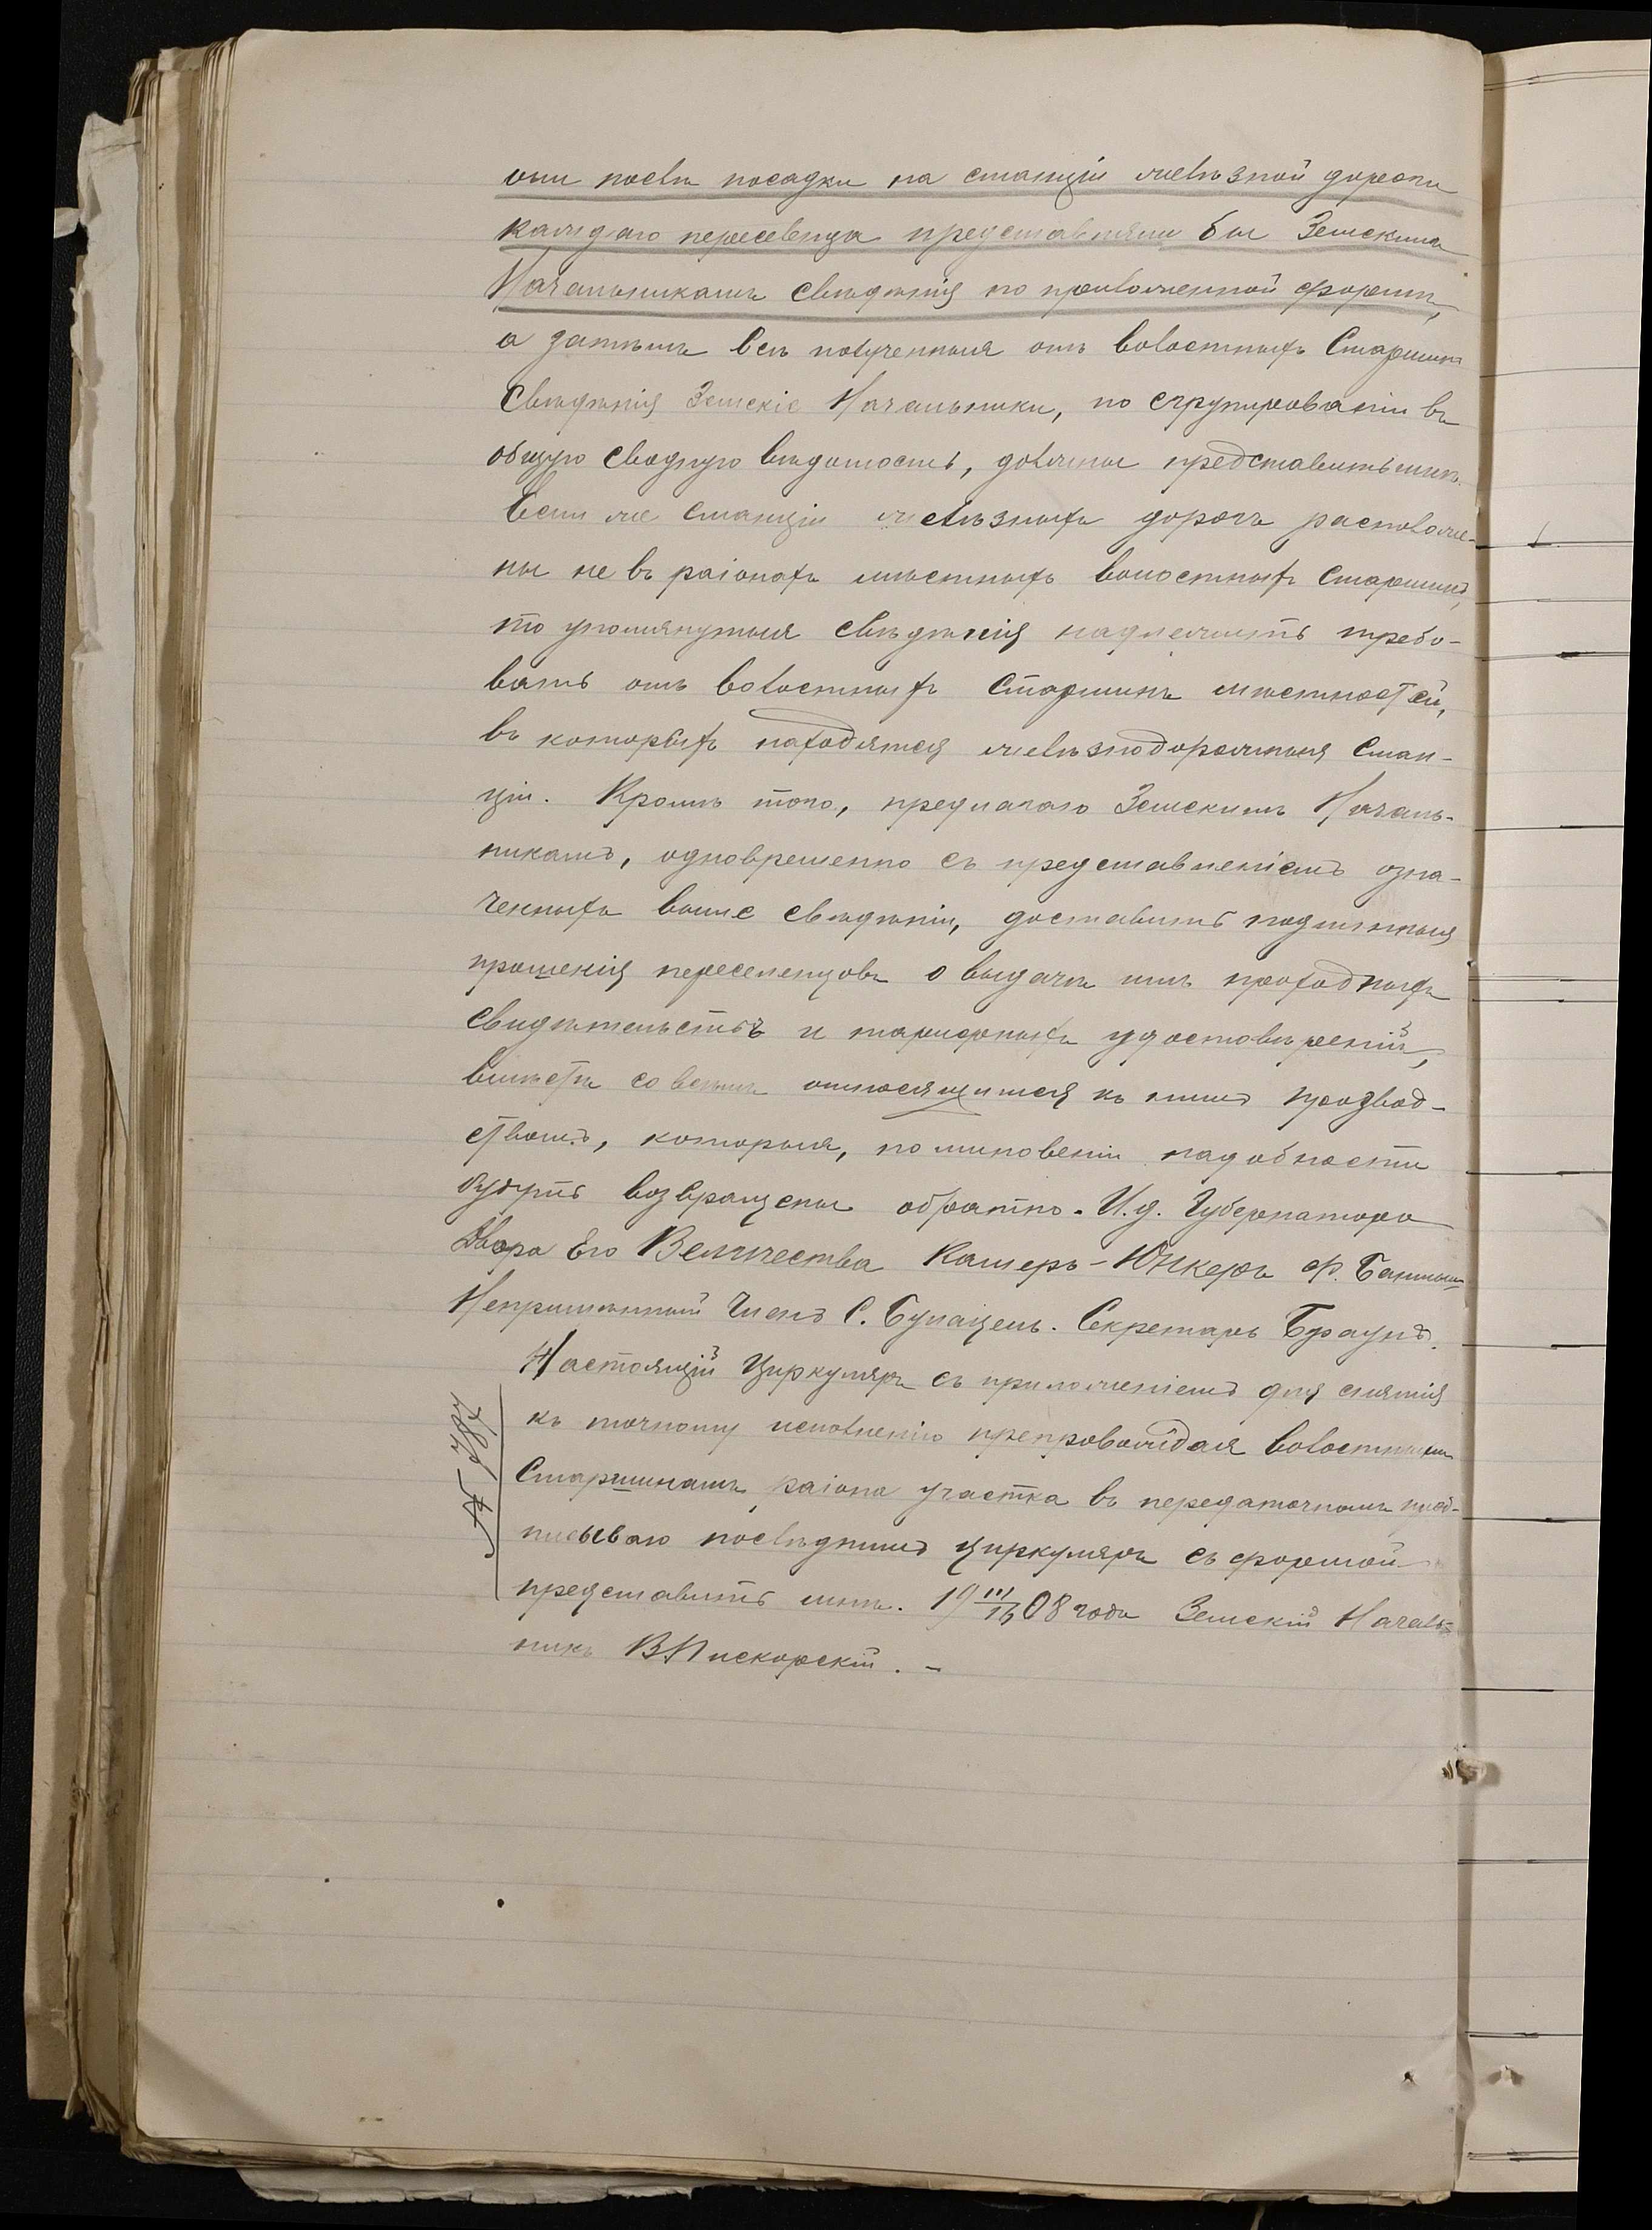 они послѣ посадки на станціи желѣзной дороги
каждаго переселенца представляли бы Земскимъ
Начальникамъ свѣдѣнія по приложенной формѣ,
а затѣмъ всѣ полученныя отъ волостныхъ Старшинъ
свѣдѣнія Земскіе Начальники, по сгрупированіи въ
общую сводную вѣдомость, должны представить мнѣ.
Если же станціи желѣзныхъ дорогъ расположе-
ны не въ раіонахъ мѣстныхъ волостныхъ Старшинъ,
то упомянутыя свѣдѣнія надлежитъ требо-
вать отъ волостныхъ Старшинъ мѣстностей,
въ которыхъ находятся желѣзнодорожныя стан-
ціи. Кромѣ того, предлагаю Земскимъ Началь-
никамъ, одновременно съ представленіемъ озна-
ченныхъ выше свѣдѣній, доставить подлинныя
прошенія переселенцовъ о выдачѣ имъ проходныхъ
свидѣтельствъ и тарифныхъ удостовѣреній,
вмѣстѣ со всѣми относящимися къ нимъ производ-
ствомъ, которыя, по минованіи надобности
будутъ возвращены обратно. И.д. Губернатора
Двора Его Величества Камеръ-Юнкеръ Ф.
Непремѣнный Членъ С. Булацель. Секретарь Браунъ.
Настоящій Циркуляръ съ приложеніемъ для снятія
къ точному исполненію препровождая волостнымъ
Старшинамъ раіона участка въ передаточномъ пред-
писываю послѣднимъ циркуляръ съ формой
представить мнѣ. 19 III/16 08 года Земскій Началь-
никъ В Пискорскій. -
№ 787